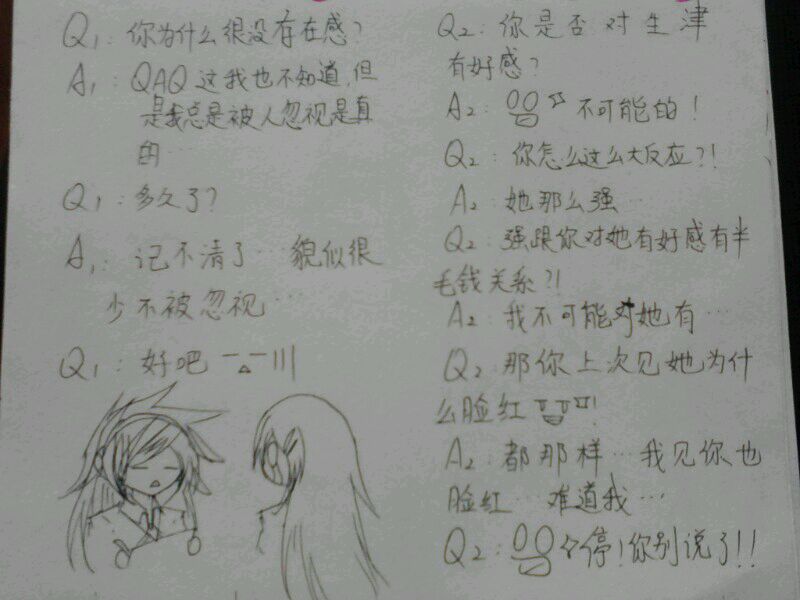 Q1：你为什么很没存在感？
A1：QAQ 这我也不知道，但
是我总是被人忽视是真
的…
Q1：多久了？
A1：记不清了…貌似很
少不被忽视…
Q1：好吧
Q2：你是否对生津
有好感？
A2：不可能的！
Q2：你怎么这么大反应？！
A2：她那么强…
Q2：强跟你对她有好感有半
毛钱关系？！
A2：我不可能对她有…
Q2：那你上次见她为什
么脸红！
A2：都那样…我见你也
脸红…难道我…
Q2：停！你别说了！！